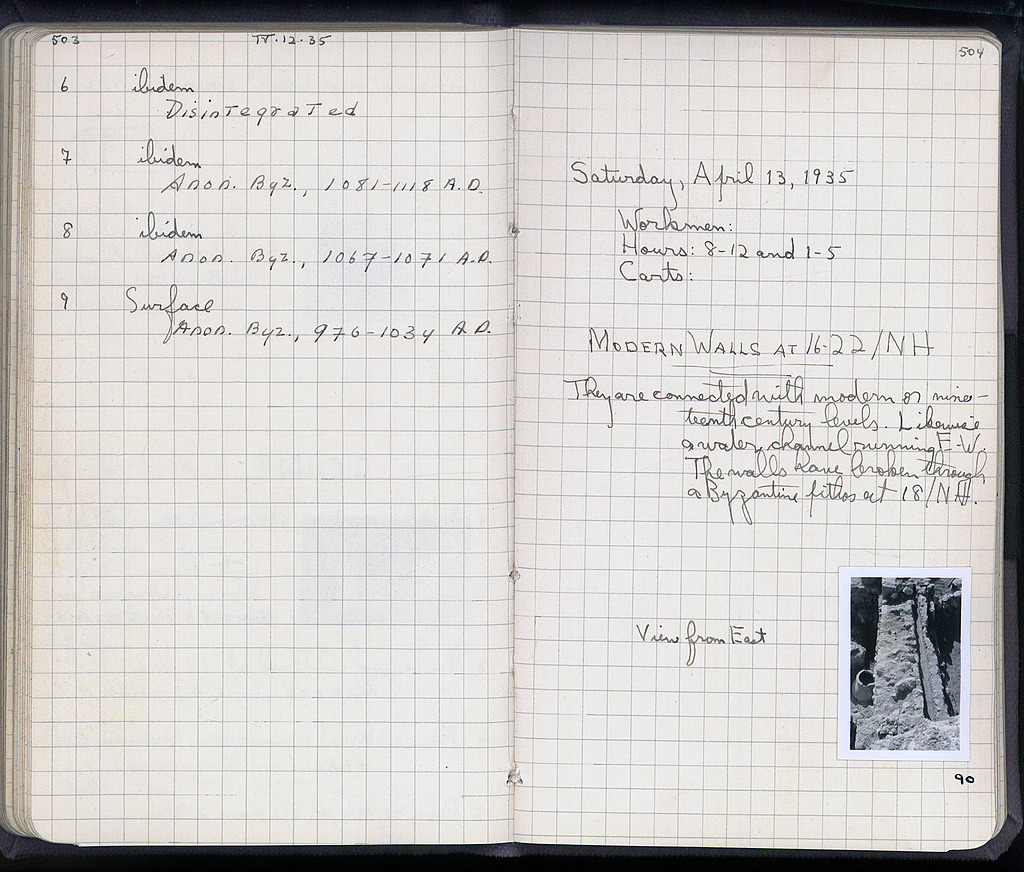 503
IV·12·35
6 ibidem
Disintegrated
7 ibidem
Anon. Byz., 1081-1118 A.D.
8 ibidem
Anon. Byz., 1067-1071 A.D.
9 Surface
Anon. Byz., 976-1034 A.D.
504
Saturday, April 13, 1935
Workmen:
Hours: 8-12 and 1-5
Carts:
MODERN WALLS AT 16-22/NH
They are connected with modern or nine-
teenth century levels. Likewise
a water channel running E-W.
The walls have broken through
a Byzantine pithos at 18/NH.
View from East
90